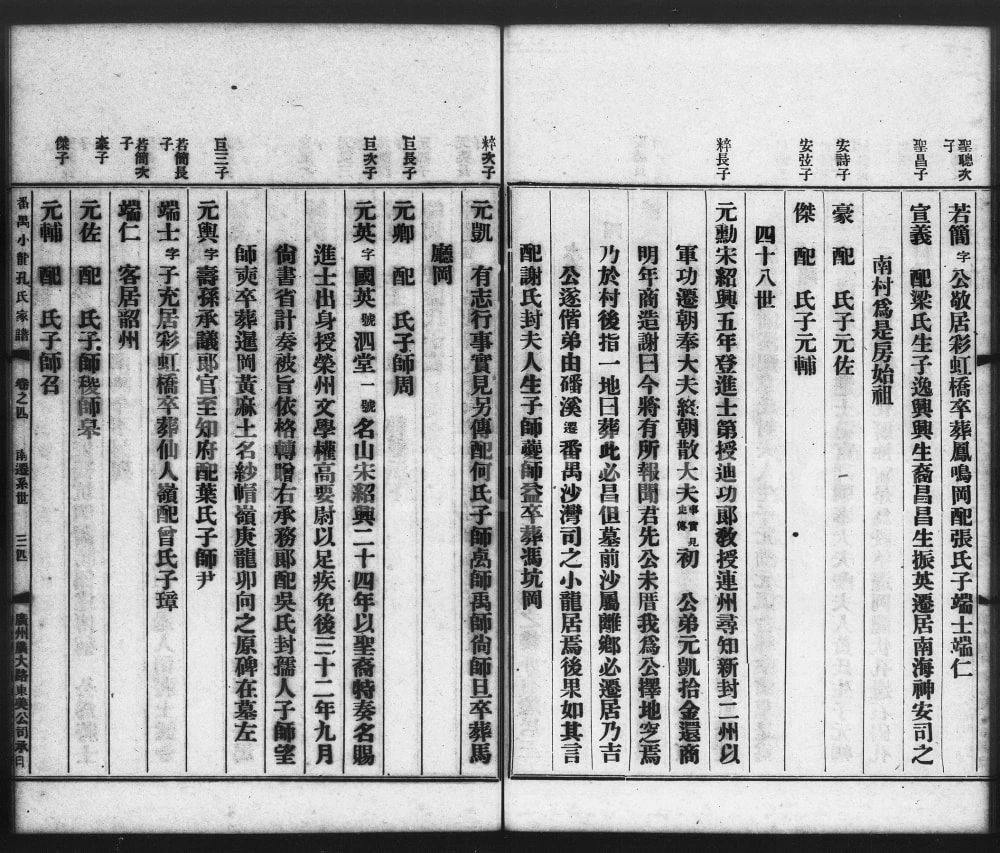 聖聰次子
若簡字公敬居彩虹橋卒葬鳳鳴岡配張氏子端士端仁
聖昌子
宣義　配梁氏生子逸興興生裔昌昌生振英遷居南海神安司之
南村爲是房始祖
安詩子
豪　配　氏子元佐
安弦子
傑　配　氏子元輔
四十八世
粹長子
元勳宋紹興五年登進士第授迪功郎敎授連州尋知新封二州以
軍功遷朝奉大夫終朝散大夫事實見史傳初　公弟元凱拾金還商
明年商造謝曰今將有所報聞君先公未厝我爲公擇地窆焉
乃於村後指一地曰葬此必昌但墓前沙屬離鄉必遷居乃吉
公遂偕弟由磻溪遷番禺沙灣司之小龍居焉後果如其言
配謝氏封夫人生子師夔師益卒葬馮坑岡
粹次子
元凱　有志行事實見另傳配何氏子師卨師禹師尙師旦卒葬馬
廳岡
巨長子
元卿　配　氏子師周
巨次子
元英字國英號泗堂一號名山宋紹興二十四年以聖裔特奏名賜
進士出身授榮州文學權高要尉以足疾免後三十二年九月
尙書省計奏被旨依格轉贈右承務郎配吳氏封孺人子師望
師奭卒葬暹岡黃麻土名紗帽嶺庚龍卯向之原碑在墓左
巨三子
元輿字壽孫承議郎官至知府配葉氏子師尹
若簡長子
端士字子充居彩虹橋卒葬仙人嶺配曾氏子璋
若簡次子
端仁　客居韶州
豪子
元佐　配　氏子師稷師皋
傑子
元輔　配　氏子師召
番禺小龍孔氏家譜　卷之四　南遷系世　三四　廣州廣大路東美公司承印